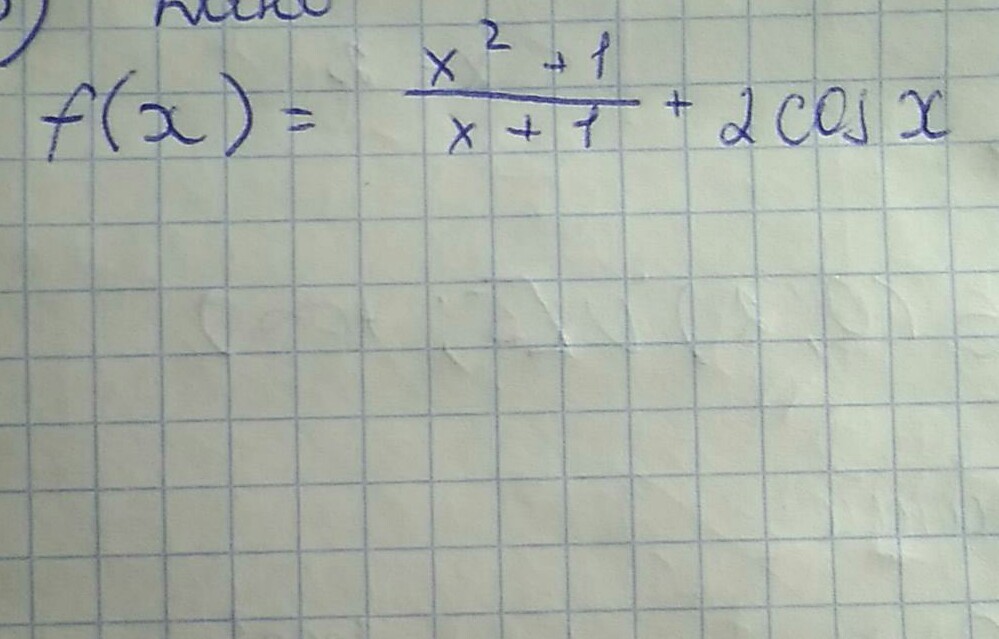 f(x) = (x² + 1)/(x + 1) + 2 cos x